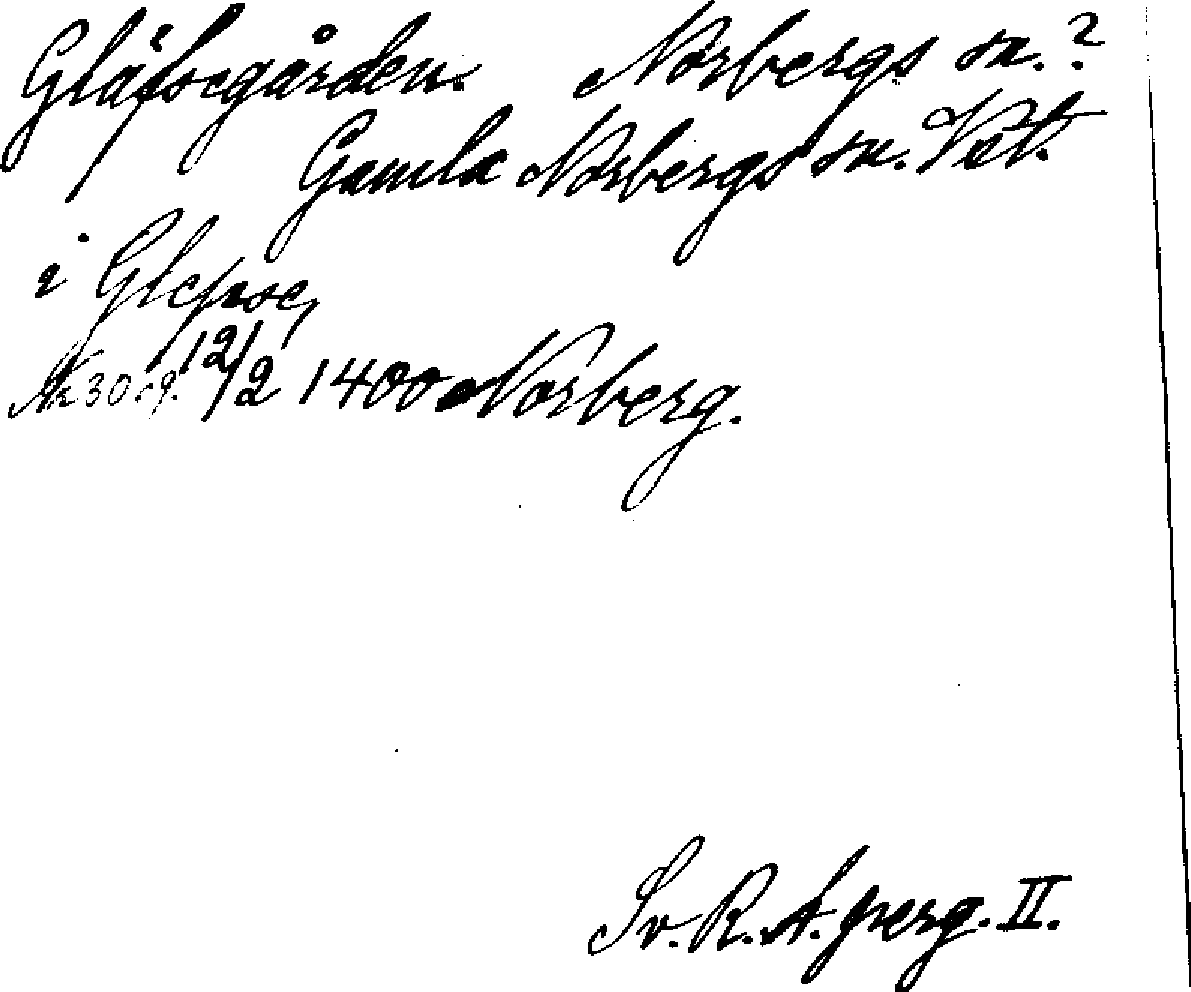 Gläfsegården. Norbergs sn.?
Gamla Norbergs sn. Vstl.
i Glepse,
Nr 3029. 12/2 1400 Norberg.
Sv. R. A. perg. II.